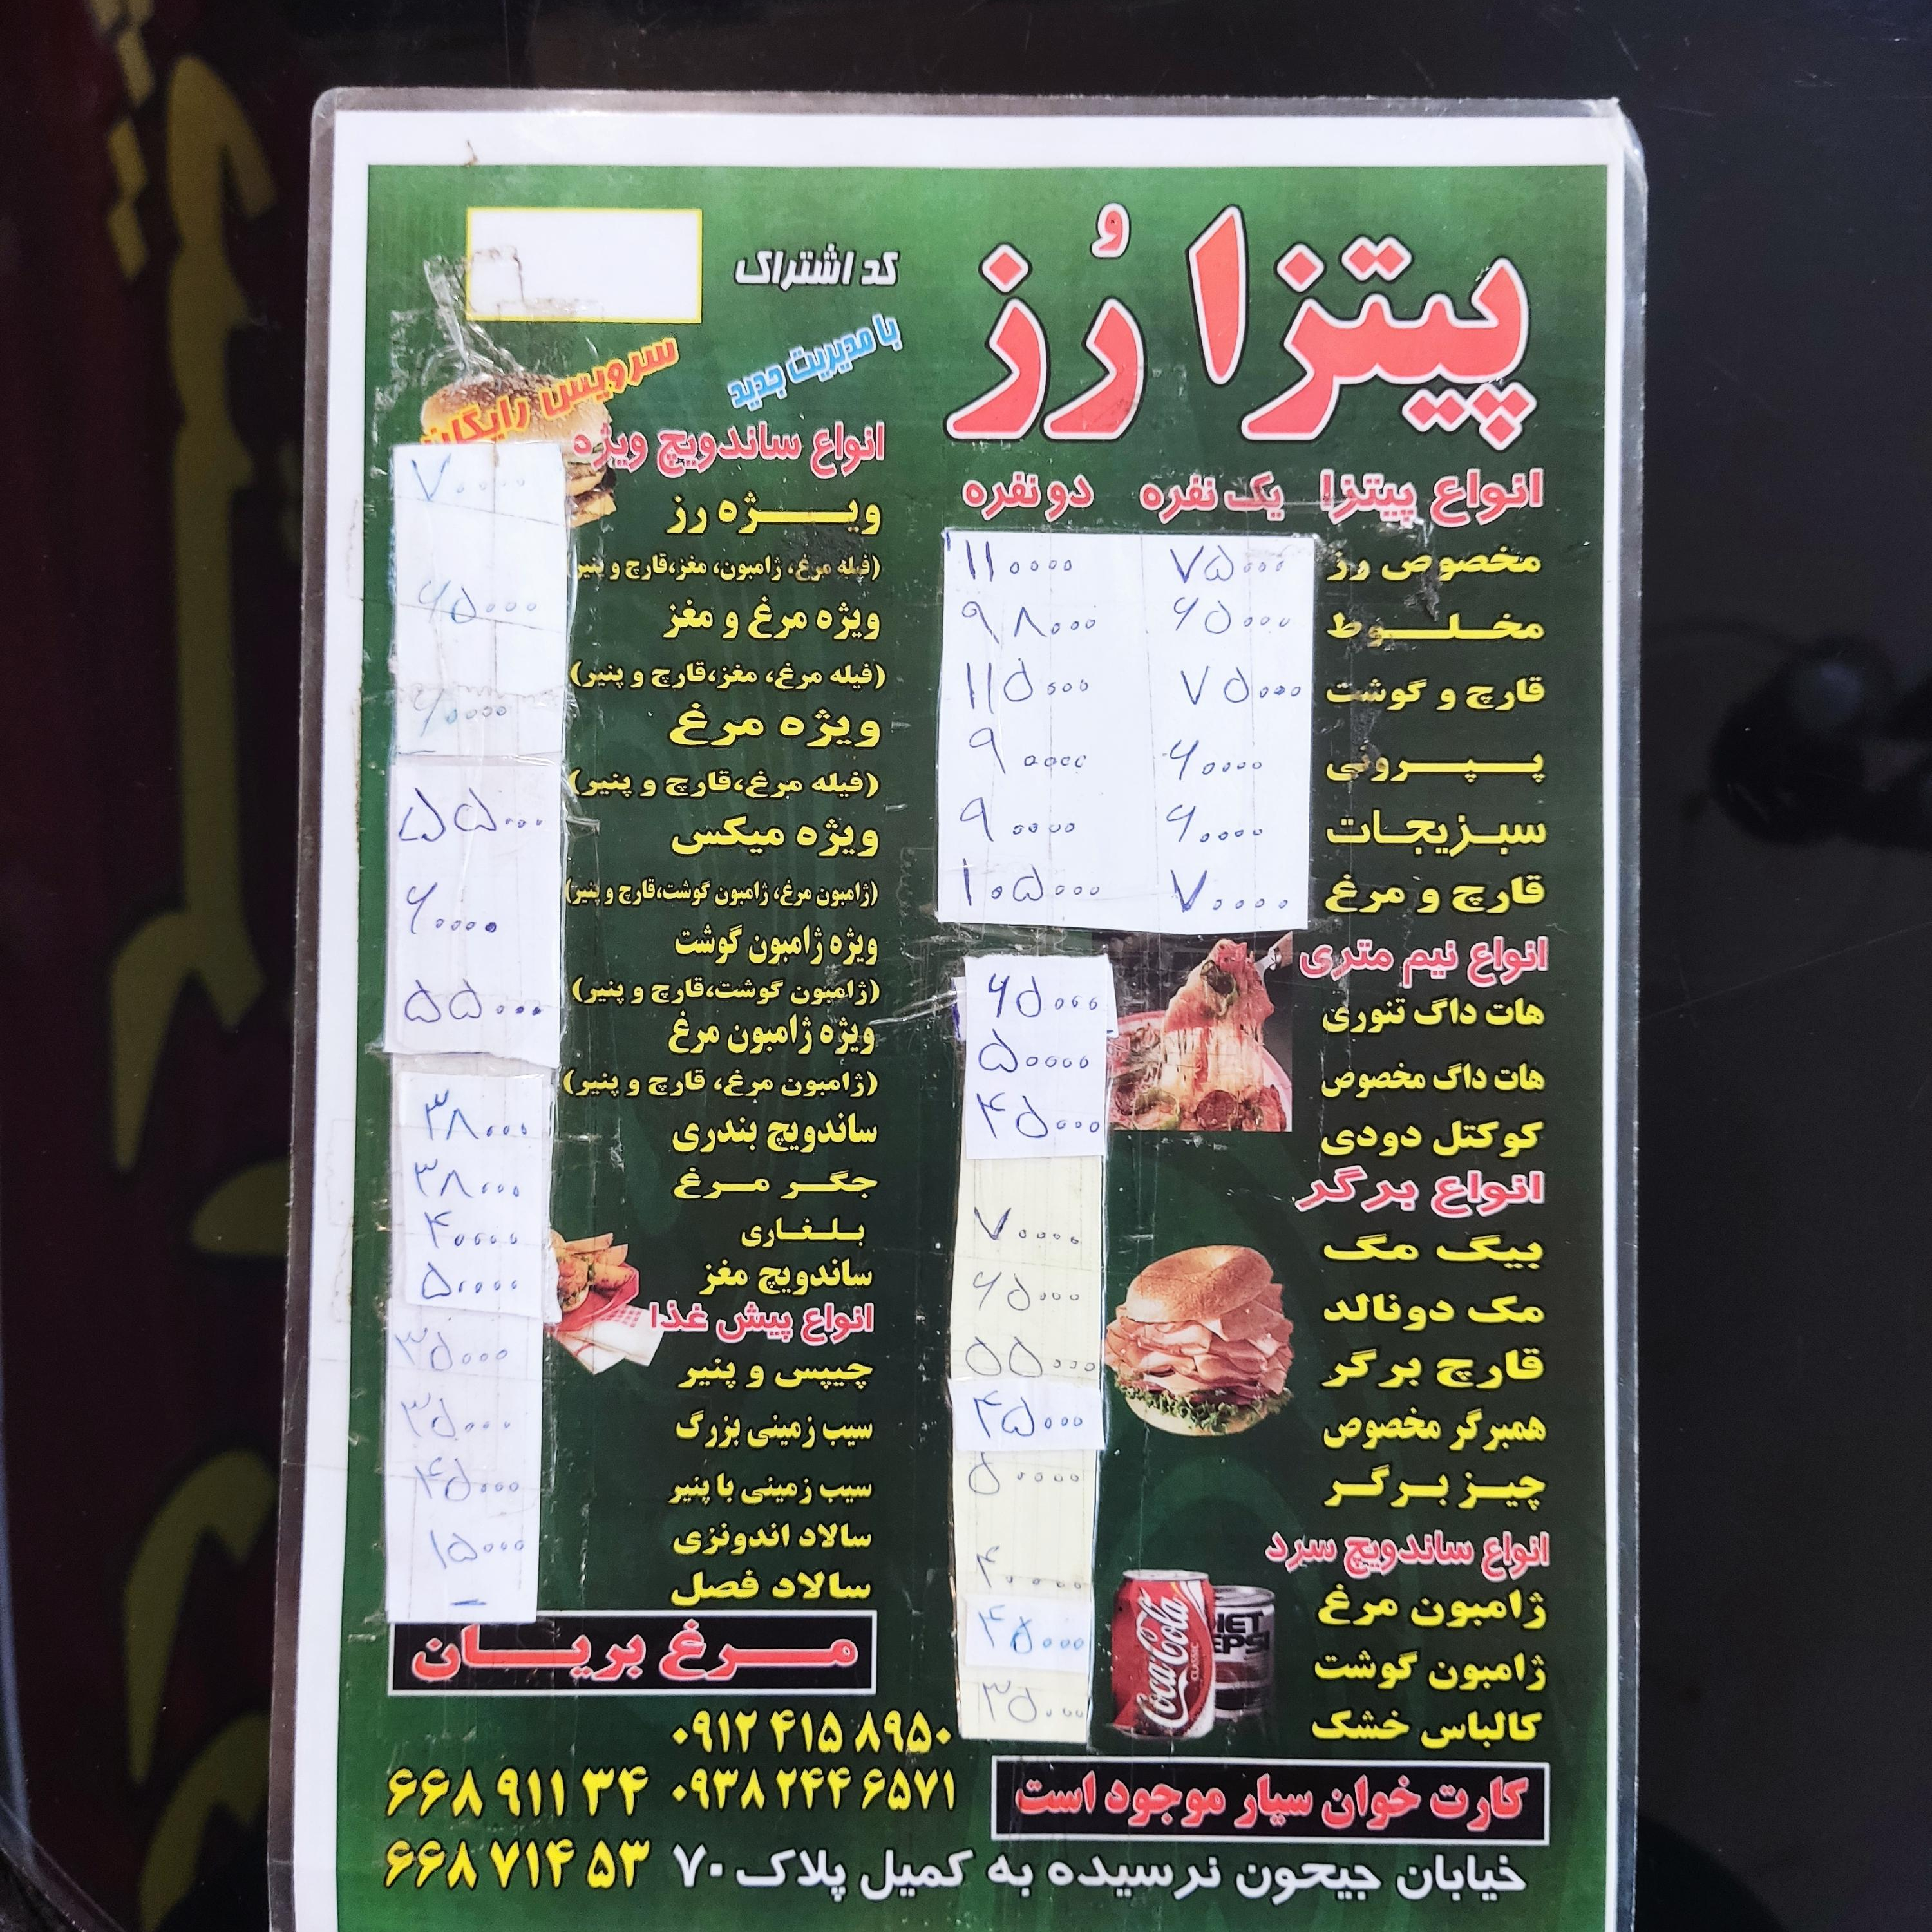 پیتزا رُز
کد اشتراک
با مدیریت جدید
سرویس رایگان
انواع پیتزا یک نفره دو نفره
مخصوص رز ۷۵۰۰۰ ۱۱۰۰۰۰
مخلوط ۶۵۰۰۰ ۹۸۰۰۰
قارچ و گوشت ۷۵۰۰۰ ۱۱۵۰۰۰
پپرونی ۶۰۰۰۰ ۹۰۰۰۰
سبزیجات ۶۰۰۰۰ ۹۰۰۰۰
قارچ و مرغ ۷۰۰۰۰ ۱۰۵۰۰۰
انواع نیم متری
هات داگ تنوری ۶۵۰۰۰
هات داگ مخصوص ۵۰۰۰۰
کوکتل دودی ۴۵۰۰۰
انواع برگر
بیگ مگ ۷۰۰۰۰
مک دونالد ۶۵۰۰۰
قارچ برگر ۵۵۰۰۰
همبرگر مخصوص ۴۵۰۰۰
چیز برگر ۵۰۰۰۰
انواع ساندویچ سرد
ژامبون مرغ ۴۰۰۰۰
ژامبون گوشت ۴۵۰۰۰
کالباس خشک ۳۵۰۰۰
Coca-Cola
CLASSIC
انواع ساندویچ ویژه
ویژه رز ۷۰۰۰۰
(فیله مرغ، ژامبون، مغز،قارچ و پنیر
ویژه مرغ و مغز ۶۵۰۰۰
(فیله مرغ، مغز،قارچ و پنیر)
ویژه مرغ ۶۰۰۰۰
(فیله مرغ،قارچ و پنیر)
ویژه میکس ۵۵۰۰۰
(ژامبون مرغ، ژامبون گوشت،قارچ و پنیر)
ویژه ژامبون گوشت ۶۰۰۰۰
(ژامبون گوشت،قارچ و پنیر)
ویژه ژامبون مرغ ۵۵۰۰۰
(ژامبون مرغ، قارچ و پنیر)
ساندویچ بندری ۳۸۰۰۰
جگر مرغ ۳۸۰۰۰
بلغاری ۴۰۰۰۰
ساندویچ مغز ۵۰۰۰۰
انواع پیش غذا
چیپس و پنیر ۳۵۰۰۰
سیب زمینی بزرگ ۳۵۰۰۰
سیب زمینی با پنیر ۴۵۰۰۰
سالاد اندونزی ۱۵۰۰۰
سالاد فصل –
مرغ بریان
۰۹۱۲ ۴۱۵ ۸۹۵۰
۰۹۳۸ ۲۴۴ ۶۵۷۱
۶۶۸ ۹۱۱ ۳۴
کارت خوان سیار موجود است
خیابان جیحون نرسیده به کمیل پلاک ۷۰
۶۶۸ ۷۱۴ ۵۳